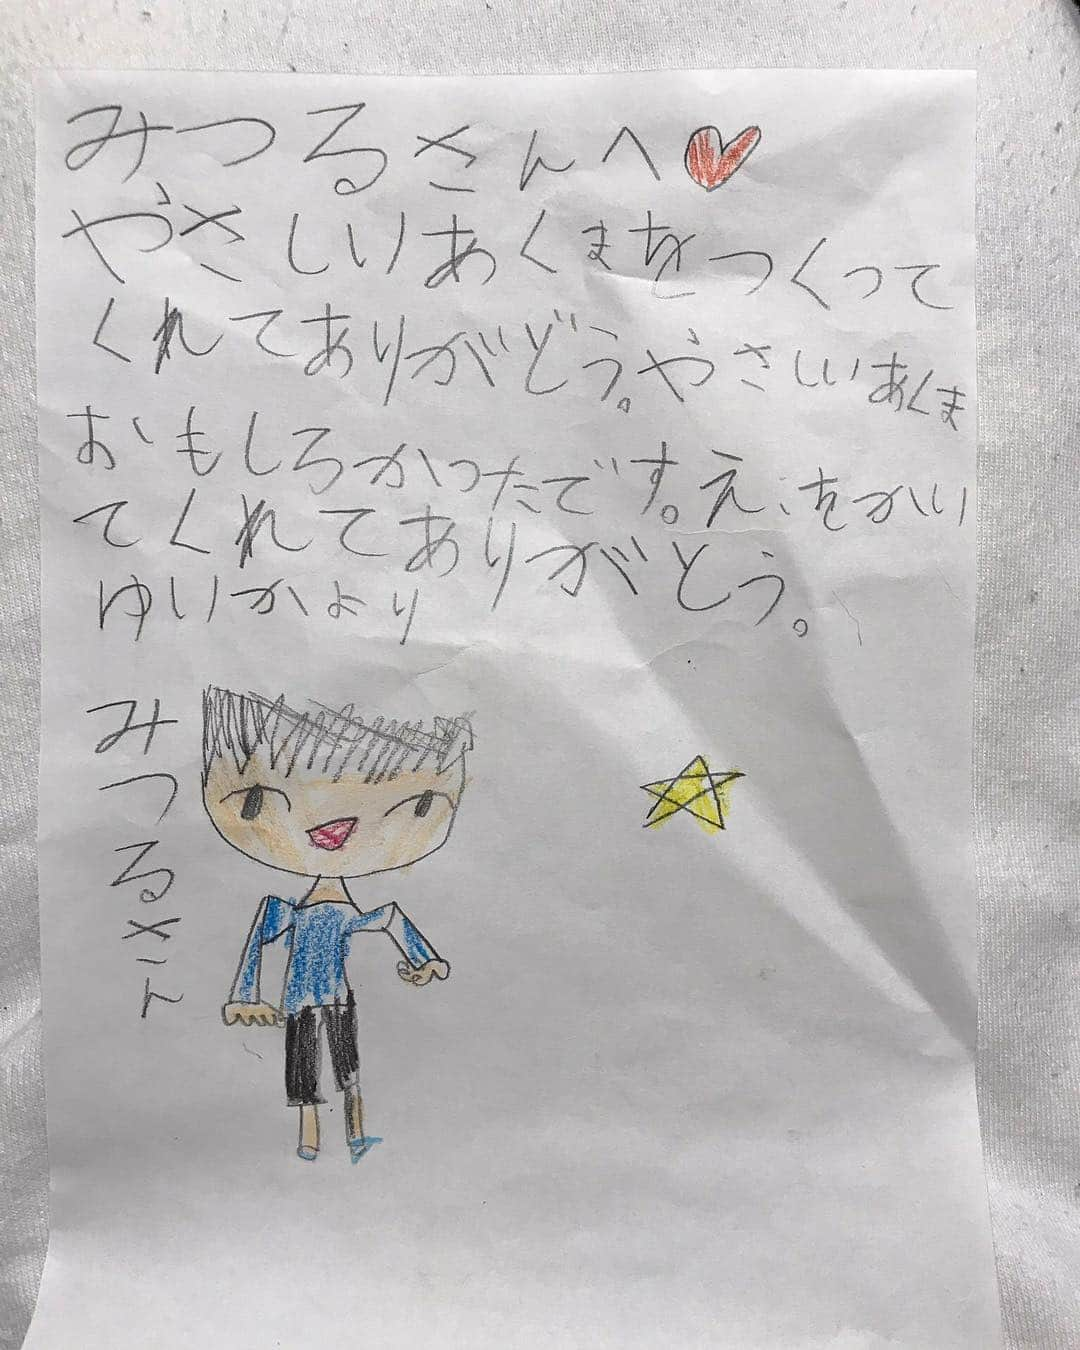 みつるさんへ
やさしいあくまをつくって
くれてありがどう。やさしいあくま
おもしろかったです。え、をかい
てくれてありがとう。
ゆいかより
みつるさん